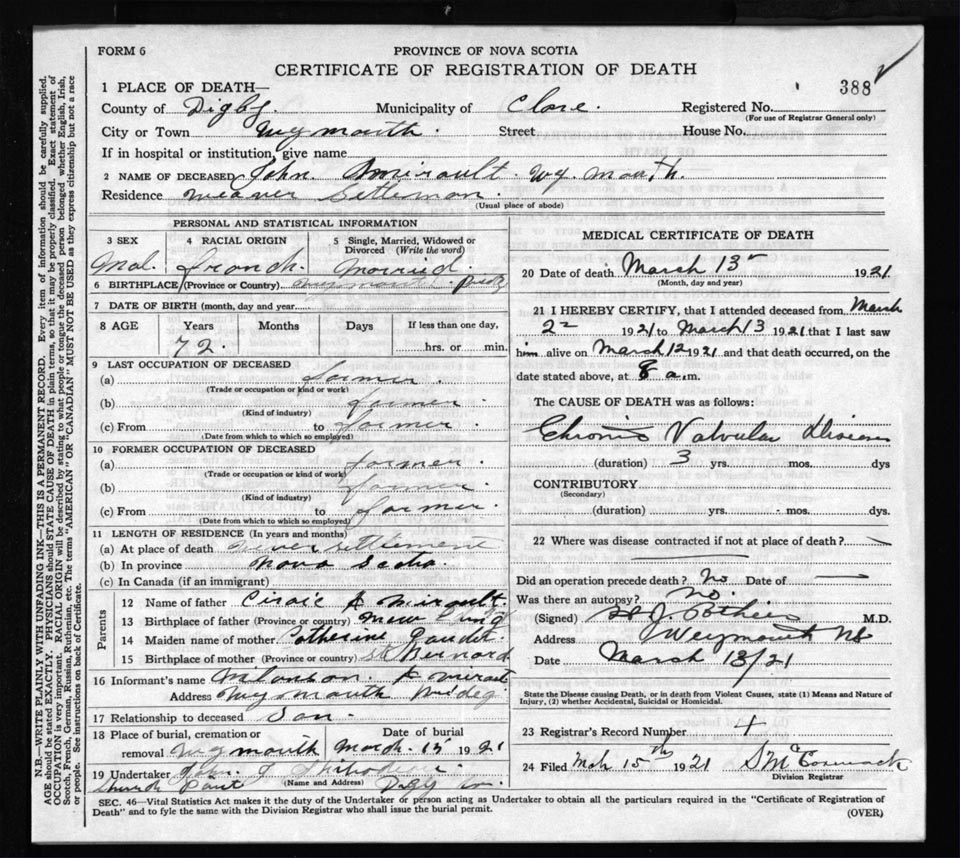 FORM 6
PROVINCE OF NOVA SCOTIA
CERTIFICATE OF REGISTRATION OF DEATH
388
1 PLACE OF DEATH—
County of Digby. Municipality of Clare. Registered No.
(For use of Registrar General only)
City or Town Wymouth. Street House No.
If in hospital or institution, give name
2 NAME OF DECEASED John. Amirault. Wymouth.
Residence Weaver Settlemon.
(Usual place of abode)
PERSONAL AND STATISTICAL INFORMATION
3 SEX 4 RACIAL ORIGIN 5 Single, Married, Widowed or Divorced (Write the word)
Mal. french. Married.
6 BIRTHPLACE (Province or Country)
7 DATE OF BIRTH (month, day and year)
8 AGE Years Months Days If less than one day,
72. hrs. or min.
9 LAST OCCUPATION OF DECEASED
(a) farmer.
(Trade or occupation or kind or work)
(b) farmer.
(Kind of industry)
(c) From to farmer.
(Date from which to which so employed)
10 FORMER OCCUPATION OF DECEASED
(a) farmer.
(Trade or occupation or kind of work)
(b) farmer.
(Kind of industry)
(c) From to farmer.
(Date from which to which so employed)
11 LENGTH OF RESIDENCE (In years and months)
(a) At place of death settlement
(b) In province Nova
(c) In Canada (if an immigrant)
Parents
12 Name of father Amirault.
13 Birthplace of father (Province or country)
14 Maiden name of mother. Catherine Gaudet.
15 Birthplace of mother (Province or country) St Bernard
16 Informant's name
Address Wymouth
17 Relationship to deceased Son.
18 Place of burial, cremation or removal Wymouth Date of burial March. 15 1921
19 Undertaker John
(Name and Address)
Church Point Digby
MEDICAL CERTIFICATE OF DEATH
20 Date of death March 13th 1921
(Month, day and year)
21 I HEREBY CERTIFY, that I attended deceased from March
2nd 1921 to March 13 1921 that I last saw
him alive on March 12 1921 and that death occurred, on the
date stated above, at 8 a.m.
The CAUSE OF DEATH was as follows:
Chronic Valvular Disease
(duration) 3 yrs. mos. dys
CONTRIBUTORY
(Secondary)
(duration) yrs. mos. dys
22 Where was disease contracted if not at place of death?
Did an operation precede death? No Date of
Was there an autopsy? No.
(Signed) M.D.
Address Weymouth NS
Date March 13/21
State the Disease causing Death, or in death from Violent Causes, state (1) Means and Nature of
Injury, (2) whether Accidental, Suicidal or Homicidal.
23 Registrar's Record Number 4
24 Filed Mch 15th 1921 S McCormack
Division Registrar
SEC. 46—Vital Statistics Act makes it the duty of the Undertaker or person acting as Undertaker to obtain all the particulars required in the "Certificate of Registration of
Death" and to fyle the same with the Division Registrar who shall issue the burial permit.
(OVER)
N.B.—WRITE PLAINLY WITH UNFADING INK—THIS IS A PERMANENT RECORD. Every item of information should be carefully supplied.
AGE should be stated EXACTLY. PHYSICIANS should STATE CAUSE OF DEATH in plain terms, so that it may be properly classified. Exact statement of
OCCUPATION is very important. RACIAL ORIGIN will be described by stating to what people or tongue the deceased person belonged whether English, Irish,
Scotch, French, German, Russian, Ruthenian, etc. The terms "AMERICAN" or "CANADIAN" MUST NOT BE USED as they express citizenship but not a race
or people. See instructions on back of Certificate.